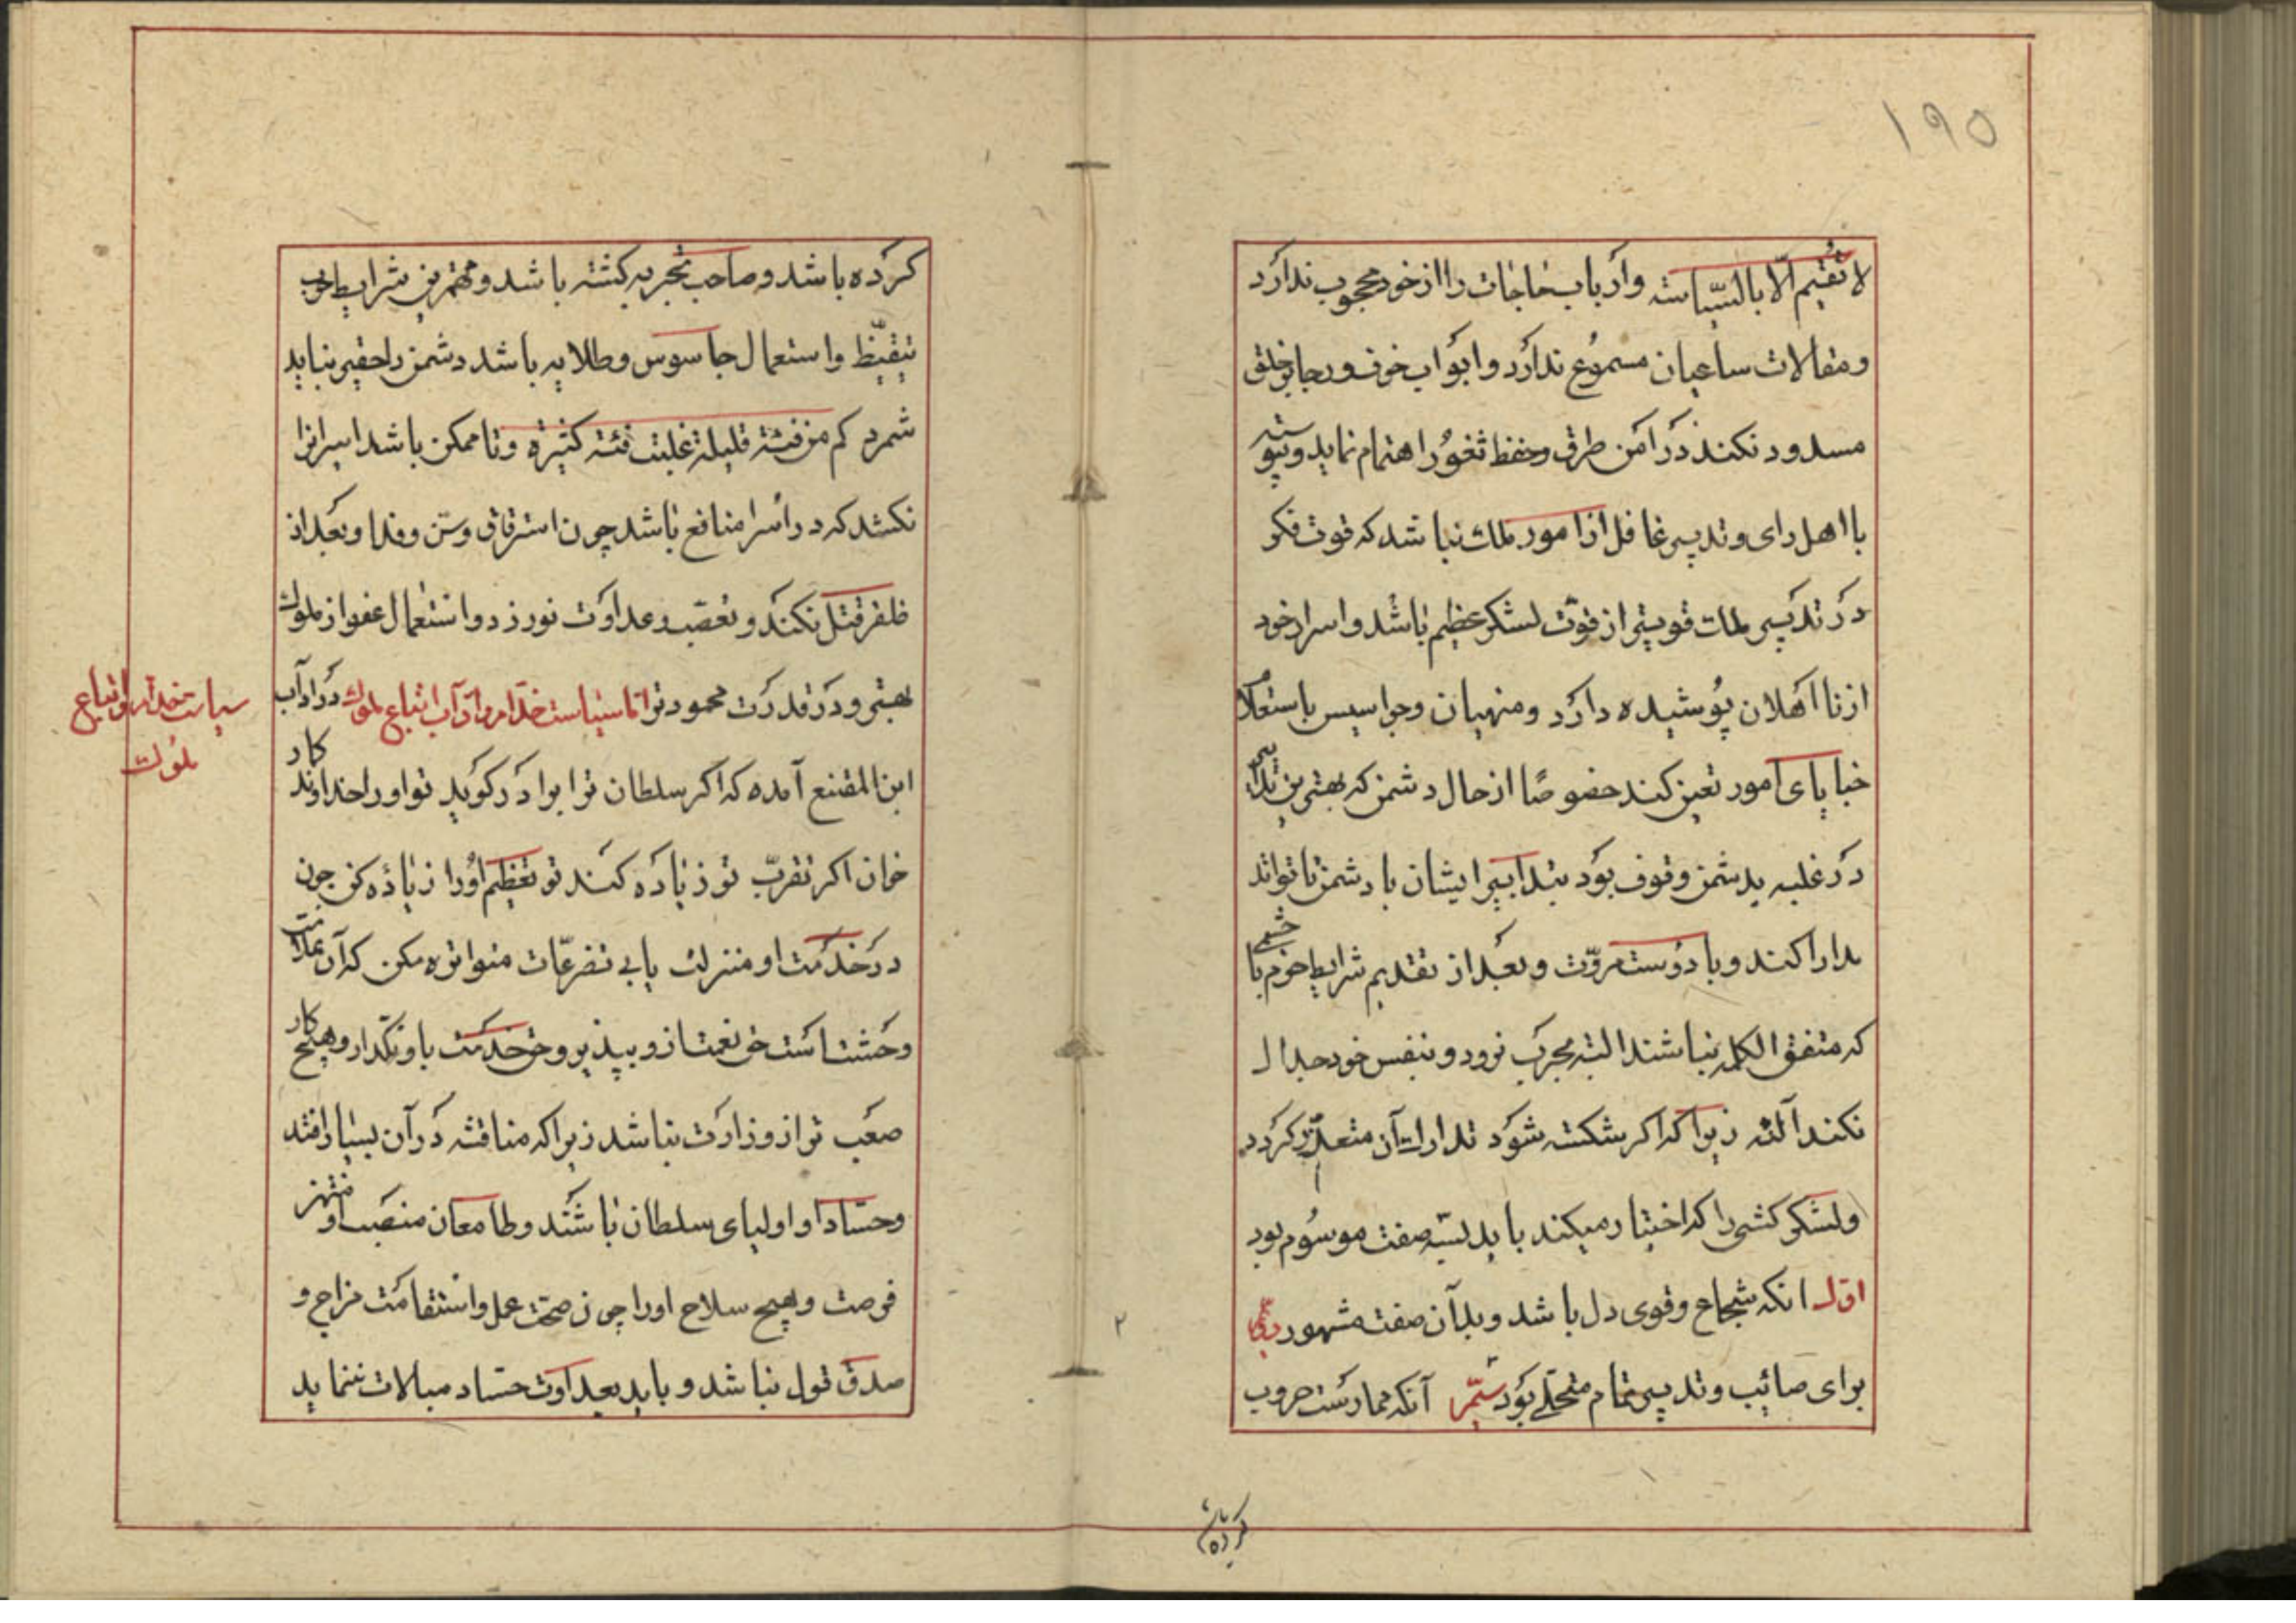 ۱۹۵
لا تقیم الّا بالسّیاسته وارباب حاجات را از خود محجوب ندارد
ومقالات ساعیان مسموع ندارد وابواب خوف ورجا بر خلق
مسدود نکند در امن طرق وحفظ ثغور اهتمام نماید وپیوسته
با اهل رای وتدبیر غافل از امور ملک نباشد که قوت فکر
در تدبیر ملک قویتر از قوّت لشکر عظیم باشد واسرار خود
از نااهلان پوشیده دارد ومنهیان وجواسیس باستعلام
خبایای امور تعین کند خصوصًا از حال دشمن که بهترین تدابیر
در غلبه بدشمن وقوف بود بتدابیر ایشان با دشمن تا تواند
مدارا کند وبا دوست مروّت وبعد از تقدیم شرایط حزم با
که متفق الکلمه نباشند البته بحرب نرود وبنفس خود جدال
نکند البته زیرا که اگر شکسته شود تدارک آن متعذّر گردد
ولشکر کشی را که اختیار میکند باید بسه صفت موسوم بود
اوّل انکه شجاع وقوی دل باشد وبدان صفت مشهور دیّم
برای صائب وتدبیر تمام متحلّی بود سیّم آنکه ممارست حروب
کرده باشد
۲
کرده باشد وصاحب تجربه گشته باشد ومهمترین شرایط حرب
تیقّظ واستعمال جاسوس وطلایه باشد دشمن را حقیر نباید
شمرد کم من فئة قلیلة غلبت فئة کثیرة وتا ممکن باشد اسیرانرا
نکشد که در اسرا منافع باشد چون استرقاق ومنّ وفدا وبعد از
ظفر قتل نکند وتعصّب وعداوت نورزد واستعمال عفو از ملوک
بهتر ودر قدرت محمودتر امّا سیاست خدّام وآداب اتباع ملوک در آداب
ابن المقنع آمده که اگر سلطان ترا برادر گوید تو او را خداوندکار
خوان اگر تقرّب تو زیاده کند تو تعظیم او را زیاده کن چون
در خدمت او منزلت یابی تضرعّات متواتره مکن که آن علامت
وحشت است حق نعمت ازو بپذیر وحق خدمت باو نگذار وهیچ کار
صعب تر از وزارت نباشد زیرا که مناقشه در آن بسیار افتد
وحسّاد او اولیای سلطان باشند وطامعان منصب او منتهز
فرصت وهیچ سلاح او را چون صحّت عمل واستقامت مزاج و
صدق قول نباشد وباید بعداوت حسّاد مبالات ننماید
سیاست خدّام واتباع
ملوک